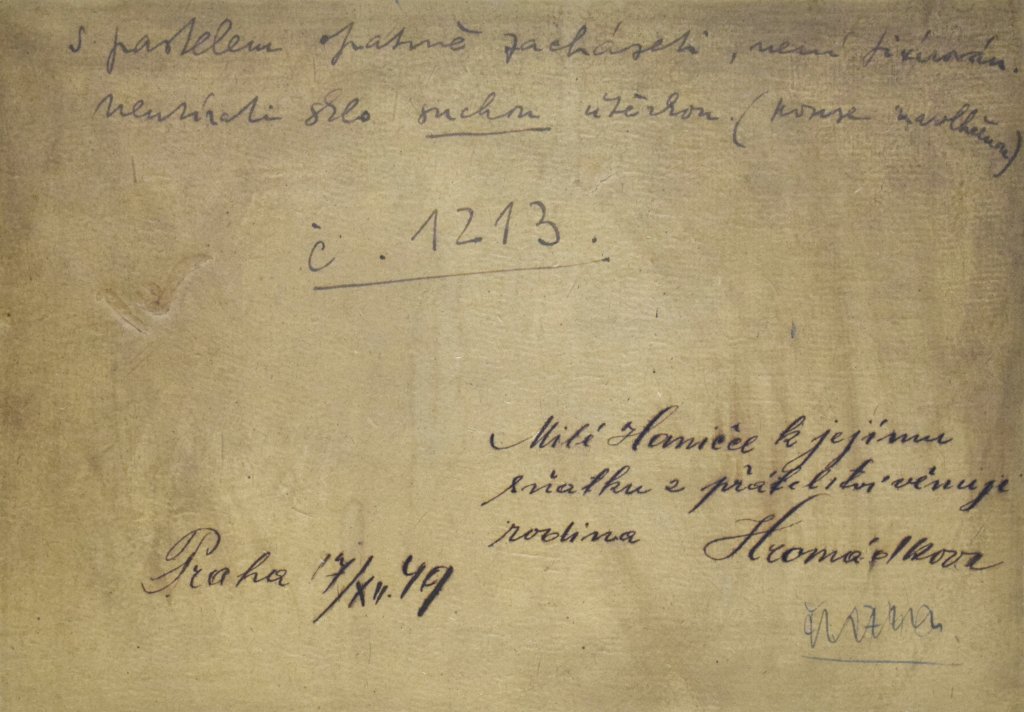 s pastelem opatrně zacházeti, není fixírován.
neutírati sklo suchou utěrkou. (pouze navlhčenou)
č. 1213.
Milé Haničce k jejímu
sňatku z přátelství věnuje
rodina Hromádkova
Praha 17/XII. 49